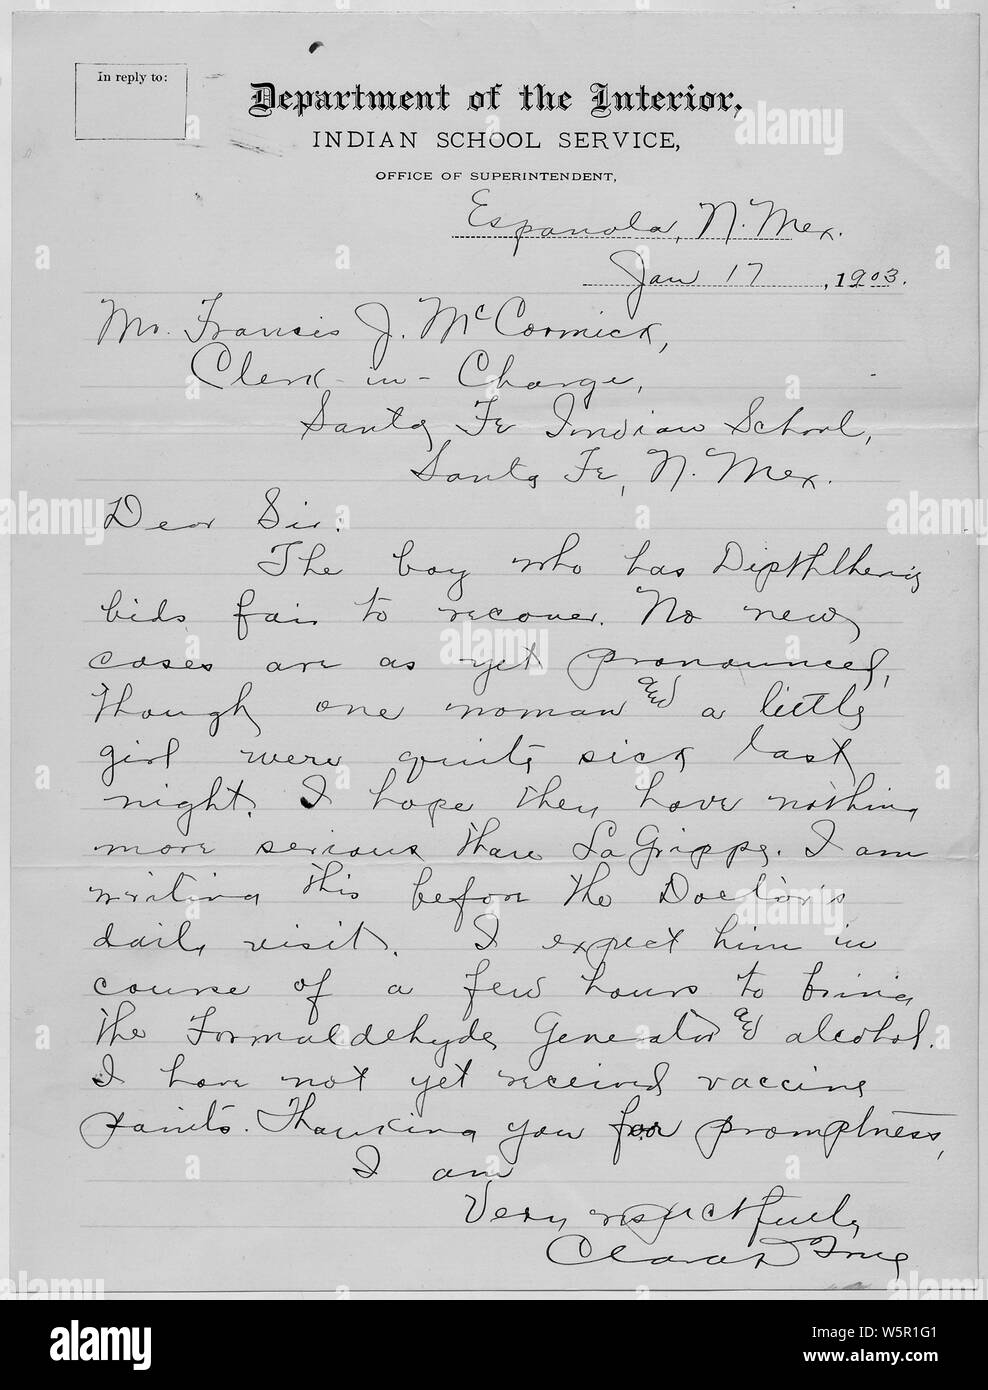 In reply to:
Department of the Interior,
INDIAN SCHOOL SERVICE,
OFFICE OF SUPERINTENDENT,
Espanola, N. Mex.
Jan 17, 1903.
Mr. Francis J. McCormick,
Clerk-in-Charge,
Santa Fe Indian School,
Santa Fe, N. Mex.
Dear Sir:
The boy who has Dipththeria
bids fair to recover. No new
cases are as yet pronounced,
though one woman and a little
girl were quite sick last
night. I hope they have nothing
more serious than LaGrippe. I am
writing this before the Doctor's
daily visit. I expect him in
course of a few hours to bring
the Formaldehyde Generator and alcohol.
I have not yet received vaccine
points. Thanking you for promptness,
I am
Very respectfully
Clara D True
alamy
a
alamy stock photo
Image ID: W5R1G1
www.alamy.com